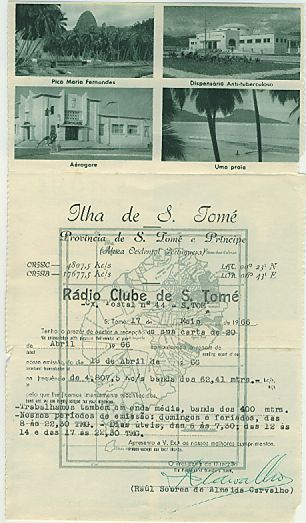 Pico Maria Fernandes
Dispensário Anti-tuberculoso
Aérogare
Uma praia
Ilha de S. Tomé
Província de S. Tomé e Príncipe
(África Ocidental Portuguesa)
CR5SC 4807,5 Kc/s LAT. 00º 23' N
CR5SB 17677,5 Kc/s LON. 06º 43' E
Rádio Clube de S. Tomé
C.X. Postal nº 44 - S. TOMÉ
S. Tomé 17 de Maio de 1966
Tenho o prazer de acusar a recepção da sua carta de 20
Abril 66
nossa emissão do 18 de Abril de 66
na frequência de 4.807,5 Kc/s bandas dos 62,41 mtrs.
pelo que lhe ficamos imensamente reconhecidos.
-Trabalhamos também em onda média, banda dos 400 mtrs.
-Nossos períodos de emissão: domingos e feriados, das
8 às 22,30 TMG. - Dias úteis, das 6 às 7,30; das 12 às
14 e das 17 às 22,30 TMG.
Apresento a V. Exª os nossos melhores cumprimentos.
O Presidente da Direcção
(Raúl Soures de Almeida Carvalho)